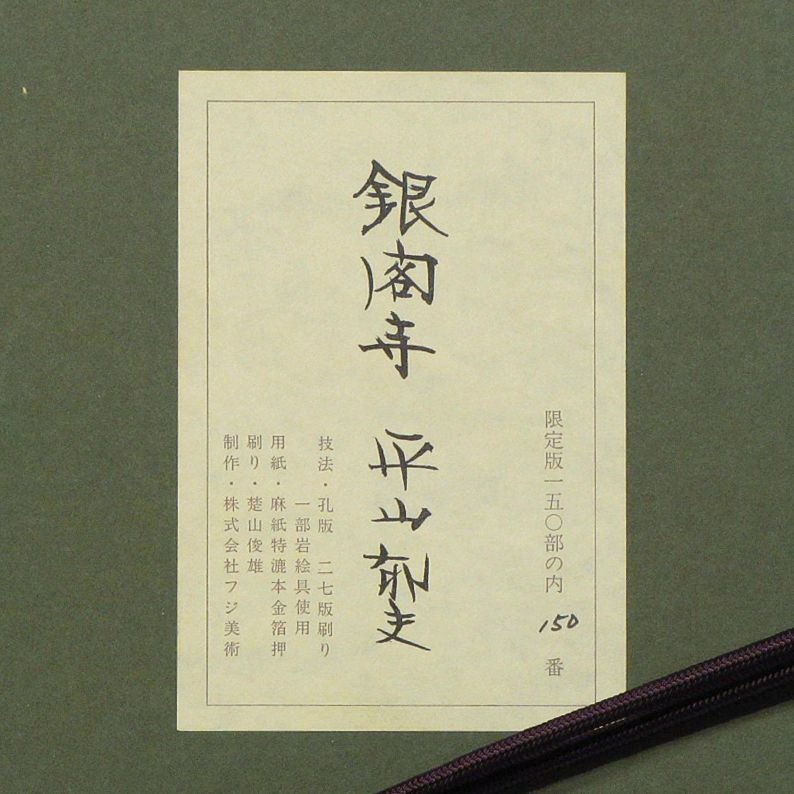 限定版一五〇部の内 150 番
銀閣寺 平山郁夫
技法・孔版 二七版刷り
一部岩絵具使用
用紙・麻紙特漉本金箔押
刷り・楚山俊雄
制作・株式会社フジ美術